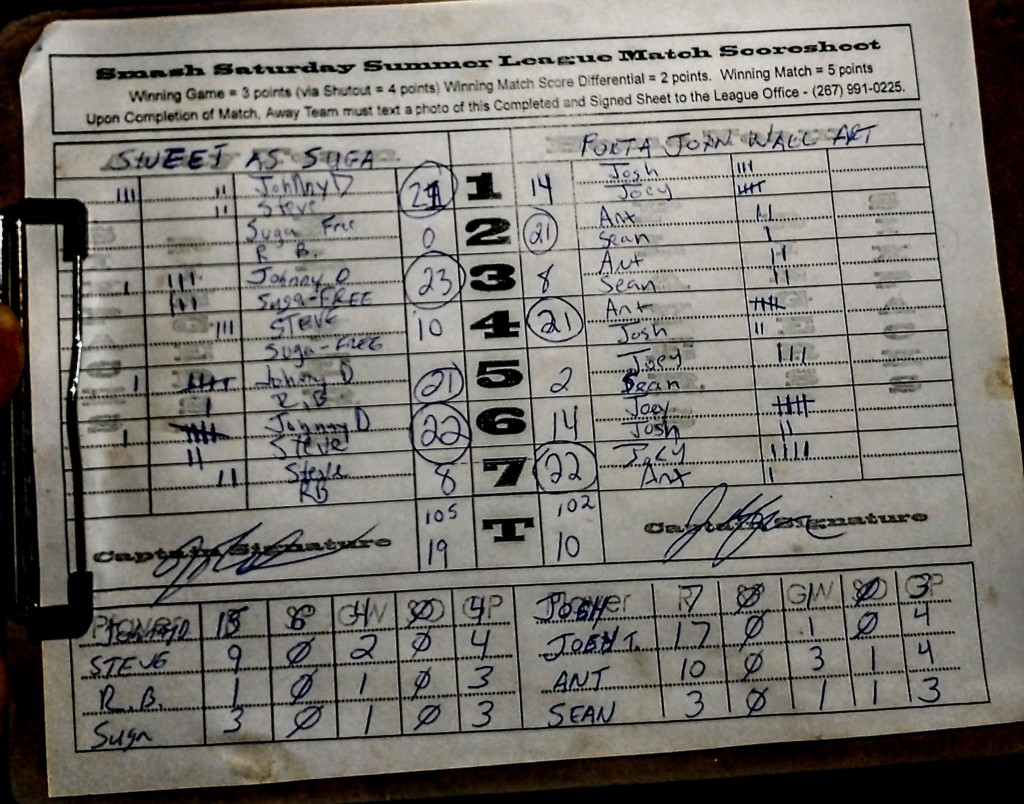 Smash Saturday Summer League Match Scoresheet
Winning Game = 3 points (via Shutout = 4 points) Winning Match Score Differential = 2 points. Winning Match = 5 points
Upon Completion of Match, Away Team must text a photo of this Completed and Signed Sheet to the League Office - (267) 991-0225.
SWEET AS SUGA PORTA JOHN WALL ART
Johnny D 1 14 Josh
Steve Joey
Suga Free 0 2 21 Ant
R B. Sean
Johnny D 23 3 8 Ant
Suga-FREE Sean
STEVE 10 4 21 Ant
Suga-FREE Josh
Johnny D 21 5 2 Joey
R,B Sean.
Johnny D 22 6 14 Joey
Steve Josh
Steve 8 7 22 Joey
RB Ant
105 T 102
Captain Signature Captain Signature
19 10
Player GW GP Player R GW GP
4 Ø 4 JOSH 7 Ø 1 Ø 3
STEVE 9 Ø 2 Ø 4 17 Ø 1 Ø 4
R.B. 1 Ø 1 Ø 3 ANT 10 Ø 3 1 4
Suga 3 Ø 1 Ø 3 SEAN 3 Ø 1 1 3